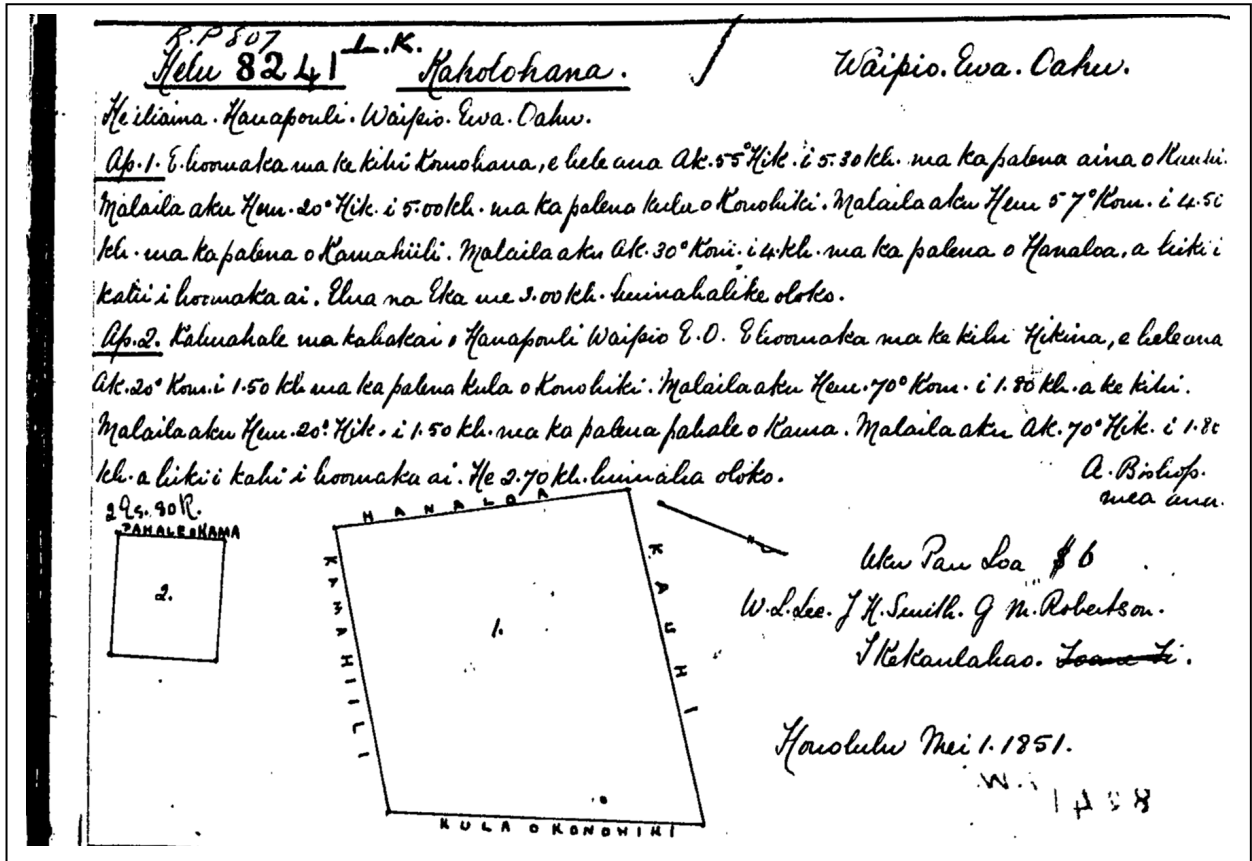 R.P 807
Helu 8241 L.K. Kaholohana. Waipio. Ewa. Oahu.
He iliaina. Hanapouli. Waipio. Ewa. Oahu.
Ap. 1. E hoomaka ma ke kihi Komohana, e hele ana Ak. 55° Hik. i 5.30 kh. ma ka palena aina o Kauhi.
Malaila aku Hem. 20° Hik. i 5.00 kh. ma ka palena kula o Konohiki. Malaila aku Hem 57° Kom. i 4.50
kh. ma ka palena o Kamahiili. Malaila aku Ak. 30° Kom. i 4. kh. ma ka palena o Hanaloa, a hiki i
kahi i hoomaka ai. Elua na Eka me 3.00 kh. huinahalike oloko.
Ap. 2. Kahuahale ma kahakai o Hanapouli Waipio E.O. E hoomaka ma ke kihi Hikina, e hele ana
Ak. 20° Kom. i 1.50 kh ma ka palena kula o Konohiki. Malaila aku Hem. 70° Kom. i 1.80 kh. a ke kihi.
Malaila aku Hem. 20° Hik. i 1.50 kh. ma ka palena pahale o Kama. Malaila aku Ak. 70° Hik. i 1.80
kh. a hiki i kahi i hoomaka ai. He 2.70 kh. huinaha oloko.
A. Bishop.
mea ana.
PAHALE O KAMA
2.
HANALOA
KAMAHIILI
1.
KAUHI
KULA O KONOHIKI
Uku Pau Loa $6
W. L. Lee. J H. Smith. G M. Robertson.
J Kekaulahao. Ioane Ii.
Honolulu Mei 1. 1851.